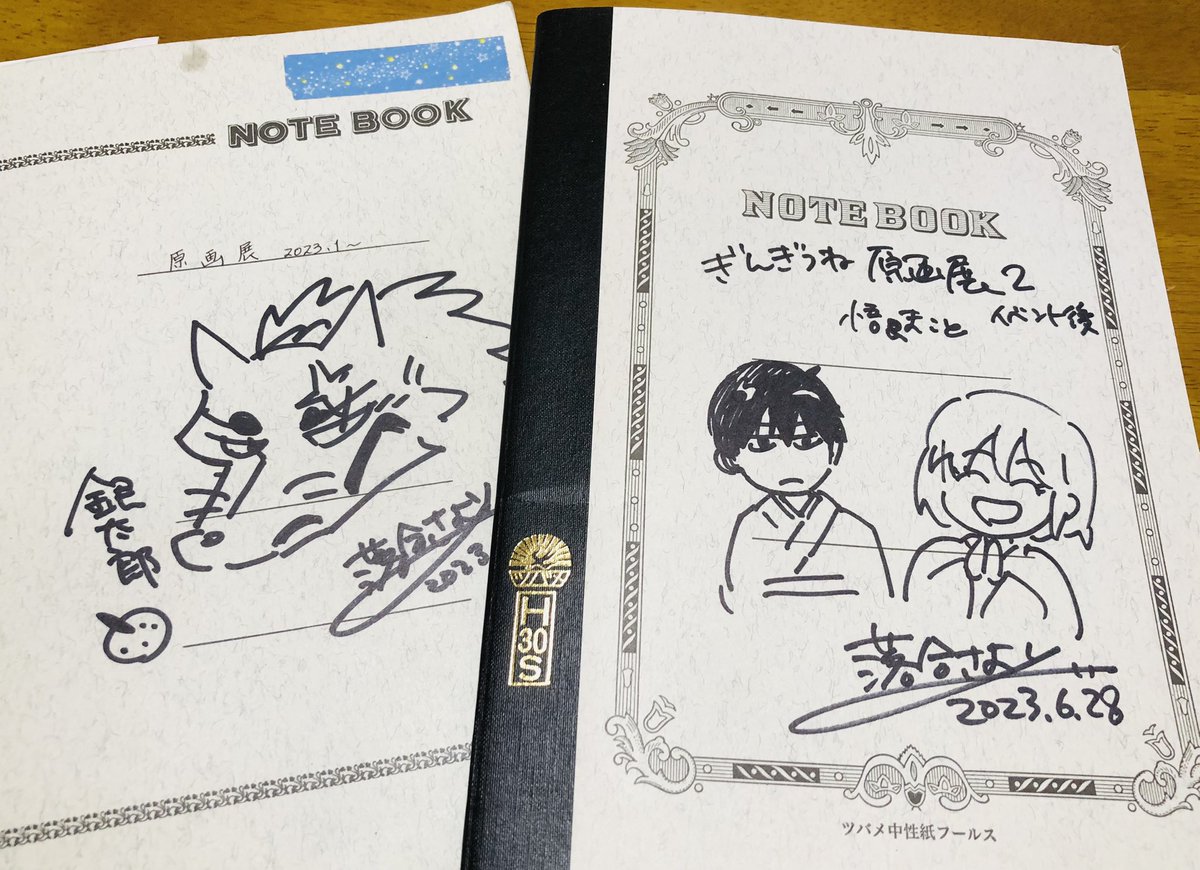 NOTE BOOK
原画展 2023.1~
銀太郎
落合さより
2023
ツバメ
H
30
S
NOTE BOOK
ぎんぎつね 原画展2
悟&まこと イベント後
落合さより
2023.6.28
ツバメ中性紙フールス